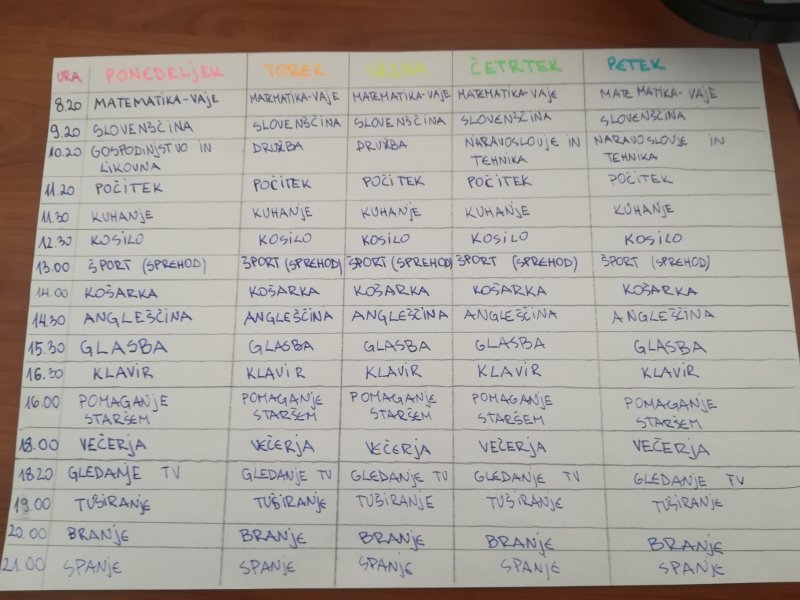 URA PONEDELJEK TOREK SREDA ČETRTEK PETEK
8.20 MATEMATIKA-VAJE MATEMATIKA-VAJE MATEMATIKA-VAJE MATEMATIKA-VAJE MATEMATIKA-VAJE
9.20 SLOVENŠČINA SLOVENŠČINA SLOVENŠČINA SLOVENŠČINA SLOVENŠČINA
10.20 GOSPODINJSTVO IN DRUŽBA DRUŽBA NARAVOSLOVJE IN NARAVOSLOVJE IN
LIKOVNA TEHNIKA TEHNIKA
11.20 POČITEK POČITEK POČITEK POČITEK POČITEK
11.30 KUHANJE KUHANJE KUHANJE KUHANJE KUHANJE
12.30 KOSILO KOSILO KOSILO KOSILO KOSILO
13.00 ŠPORT (SPREHOD) ŠPORT (SPREHOD) ŠPORT (SPREHOD) ŠPORT (SPREHOD) ŠPORT (SPREHOD)
14.00 KOŠARKA KOŠARKA KOŠARKA KOŠARKA KOŠARKA
14.30 ANGLEŠČINA ANGLEŠČINA ANGLEŠČINA ANGLEŠČINA ANGLEŠČINA
15.30 GLASBA GLASBA GLASBA GLASBA GLASBA
16.30 KLAVIR KLAVIR KLAVIR KLAVIR KLAVIR
16.00 POMAGANJE POMAGANJE POMAGANJE POMAGANJE POMAGANJE
STARŠEM STARŠEM STARŠEM STARŠEM STARŠEM
18.00 VEČERJA VEČERJA VEČERJA VEČERJA VEČERJA
18.20 GLEDANJE TV GLEDANJE TV GLEDANJE TV GLEDANJE TV GLEDANJE TV
19.00 TUŠIRANJE TUŠIRANJE TUŠIRANJE TUŠIRANJE TUŠIRANJE
20.00 BRANJE BRANJE BRANJE BRANJE BRANJE
21.00 SPANJE SPANJE SPANJE SPANJE SPANJE